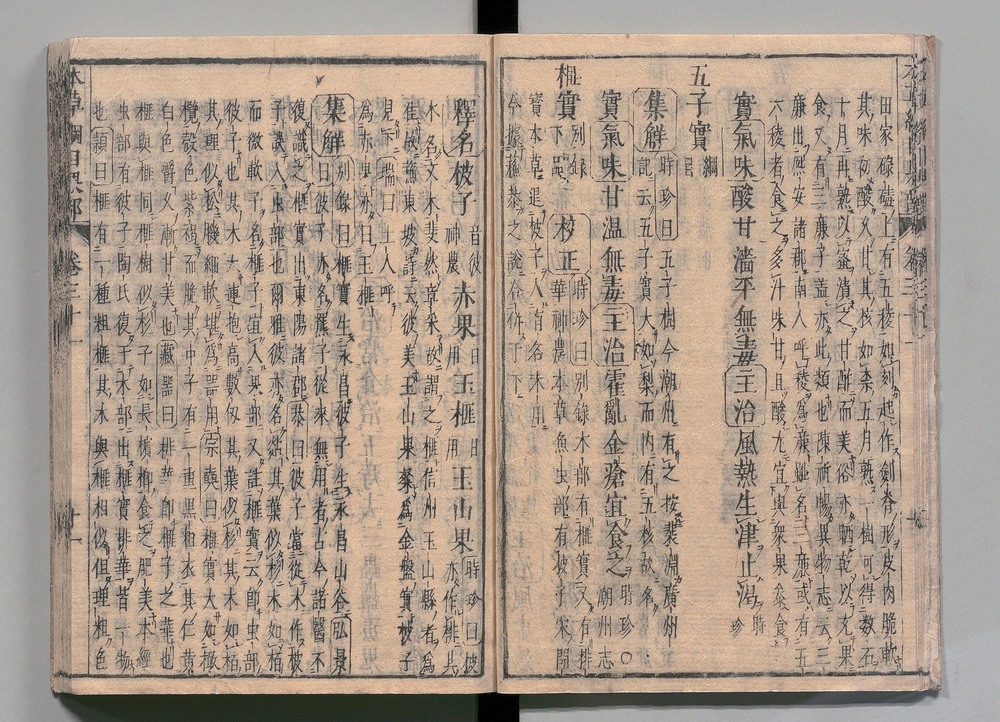 田家碌磕上有五稜如刻起作劍脊形皮肉脆軟
其味初酸久甘其核如柰五月熟一樹可得数石
十月再熟以蜜漬之甘酢而美俗亦晒乾以充果
食又有三廉子盖亦此類也陳祈暢異物志云三
廉出熙安諸郡南人呼稜為廉雖名三廉或有五
六稜者食之多汁味甘且酸尤宜與衆果参食
實氣味酸甘濇平無毒主治風熱生津止渇時珍
五子實綱目
集解時珍曰五子樹今潮州有之按裴淵廣州
記云五子實大如梨而内有五核故名
實氣味甘温無毒主治霍亂金瘡宜食之時珍○潮州志
榧實別録下品校正時珍曰別録木部有榧實又有排
華神農本草魚虫部有彼子宋開
寳本草退彼子入有名未用
今據蘇恭之説合併于下
釋名柀子音彼神農赤果日用玉榧日用玉山果時珍曰柀
亦作棑其
木名文木斐然章采故謂之榧信州玉山縣者為
佳故蘇東坡詩云彼美玉山果粲為金盤實柀子
見下瑞曰土人呼
為赤果亦曰玉榧
集解別録曰榧實生永昌彼子生永昌山谷弘景
曰彼子亦名羆子從來無用者古今諸醫不
復識之榧實出東陽諸郡恭曰彼子當從木作柀
子誤入虫部也爾雅彼亦名䊵其葉似杉其木如柏
而微軟子名榧子宜入果部又註榧實云即虫部
彼子也其木大連抱高數仭其葉似杉其木如栢
其理似松肌細軟堪為器用宗奭曰榧實大如橄
欖殻色紫褐而脆其中子有一重黒粗衣其仁黄
白色嚼久漸甘美也藏器曰棑華即榧子之華也
榧與棑同榧樹似杉子如長檳榔食之肥美本經
虫部有彼子陶氏復于木部出榧實棑華皆一物
也頴曰榧有一種粗榧其木與榧相似但理粗色
本草綱目果部 卷三十一 十一